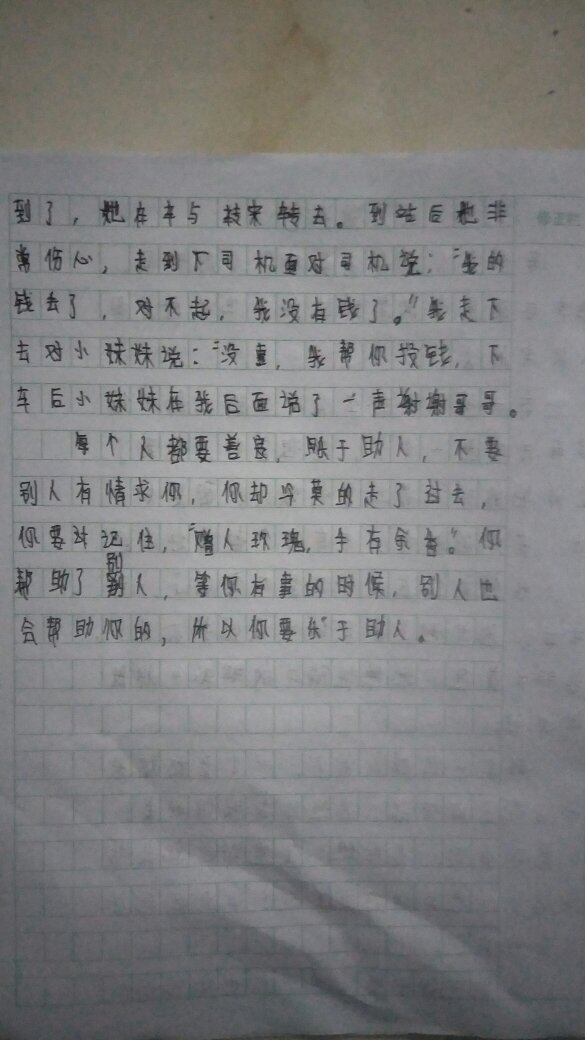 到了，她在车与转来转去。到站后她非
常伤心，走到下司机面对司机说：“我的
钱丢了，对不起，我没有钱了。”我走下
去对小妹妹说：“没事，我帮你投钱，下
车后小妹妹在我后面说了一声谢谢哥哥。
每个人都要善良，于助人，不要
别人有情求你，你却冷莫的走了过去，
你要记住，“赠人玫瑰，手有余香。”你
帮助了别人，等你有事的时候，别人也
会帮助你的，所以你要乐于助人。